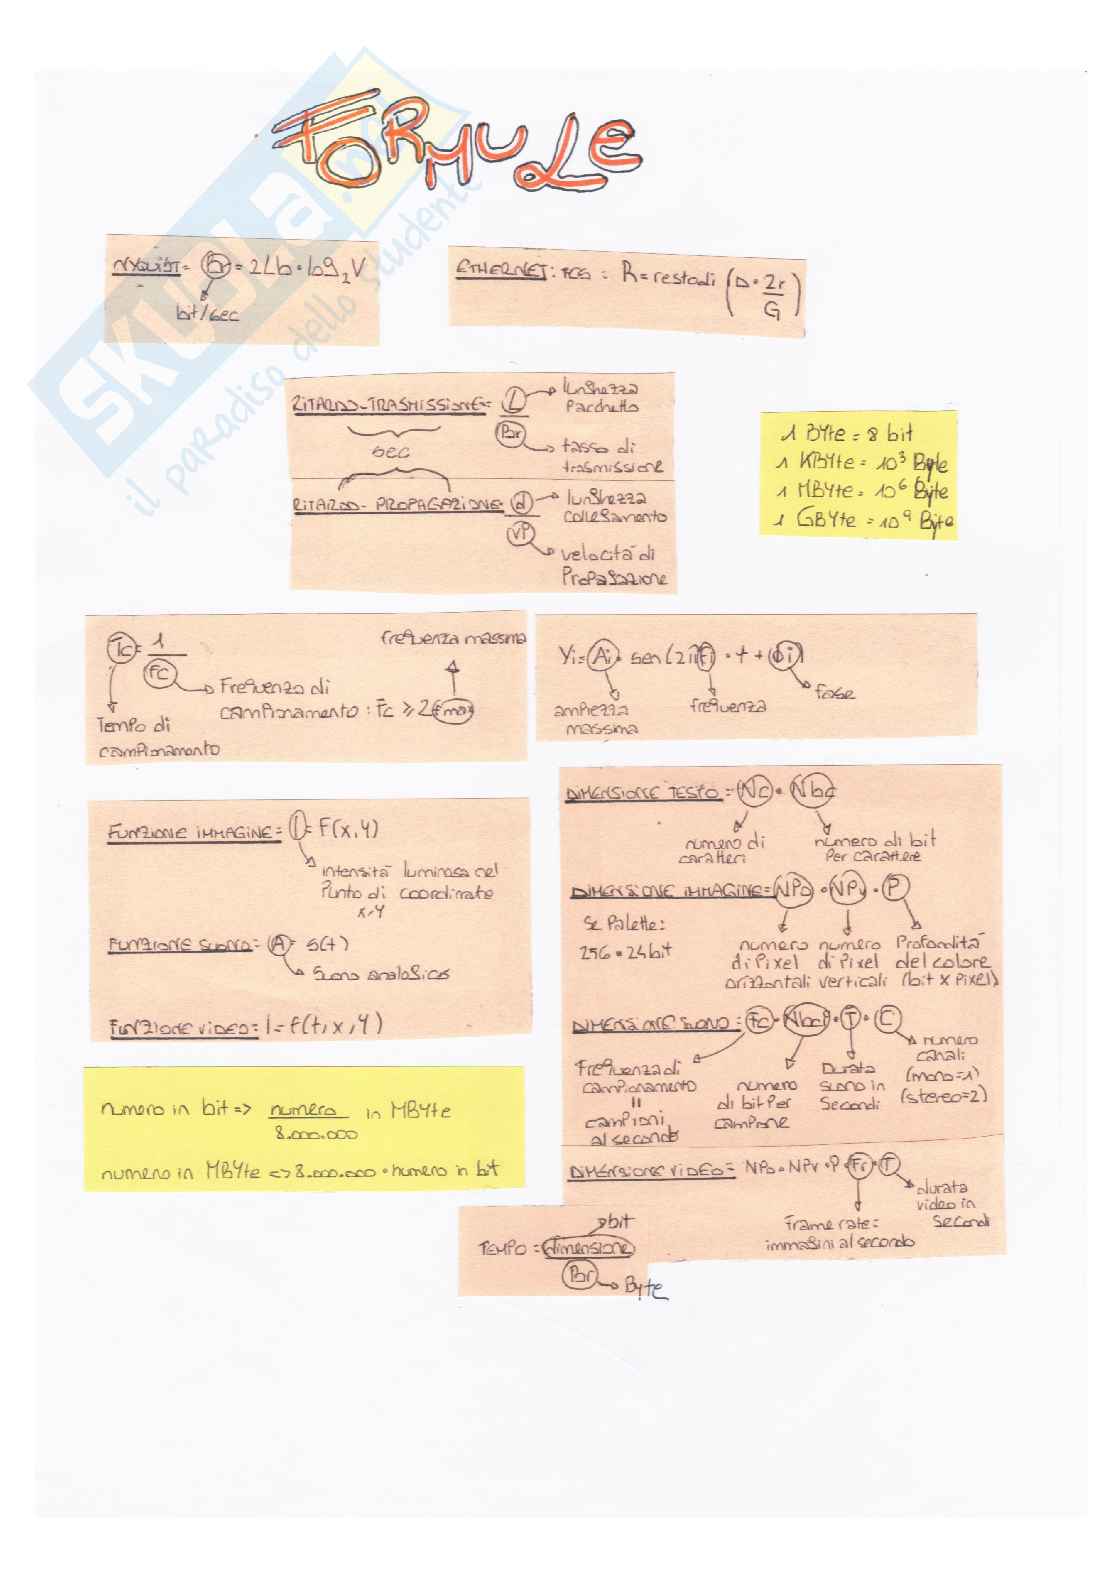 FORMULE
SKUOLA.net
il paradiso dello studente
NYQUIST = Br = 2Lb · log₂V
bit/sec
ETHERNET: FCS = R = resto di (D · 2r / G)
RITARDO-TRASMISSIONE = L / Br
lunghezza
pacchetto
sec
tasso di
trasmissione
RITARDO-PROPAGAZIONE d / VP
lunghezza
collegamento
velocità di
propagazione
1 BYte = 8 bit
1 KBYte = 10³ Byte
1 MBYte = 10⁶ Byte
1 GBYte = 10⁹ Byte
Tc = 1 / Fc
frequenza massima
Frequenza di
campionamento : Fc ≥ 2 fmax
Tempo di
campionamento
Yi = Ai · sen(2πfi · t + φi)
ampiezza
massima
frequenza
fase
FUNZIONE IMMAGINE = I = F(x,y)
intensità luminosa nel
Punto di coordinate
x,y
FUNZIONE SUONO = A = s(t)
Suono analogico
FUNZIONE VIDEO = I = f(t,x,y)
DIMENSIONE TESTO = Nc · Nbc
numero di
caratteri
numero di bit
Per carattere
DIMENSIONE IMMAGINE = NPo · NPv · P
Se Palette:
256 · 24 bit
numero
di Pixel
orizzontali
numero
di Pixel
verticali
Profondità
del colore
(bit x Pixel)
DIMENSIONE SUONO = Fc · Nbcp · T · C
Frequenza di
campionamento
=
campioni
al secondo
numero
di bit Per
campione
Durata
suono in
Secondi
numero
canali
(mono=1)
(stereo=2)
DIMENSIONE VIDEO = NPo · NPv · P · Fr · T
Frame rate =
immagini al secondo
durata
video in
Secondi
numero in bit => numero / 8.000.000 in MBYte
numero in MBYte => 8.000.000 · numero in bit
TEMPO = dimensione / Br
bit
Byte